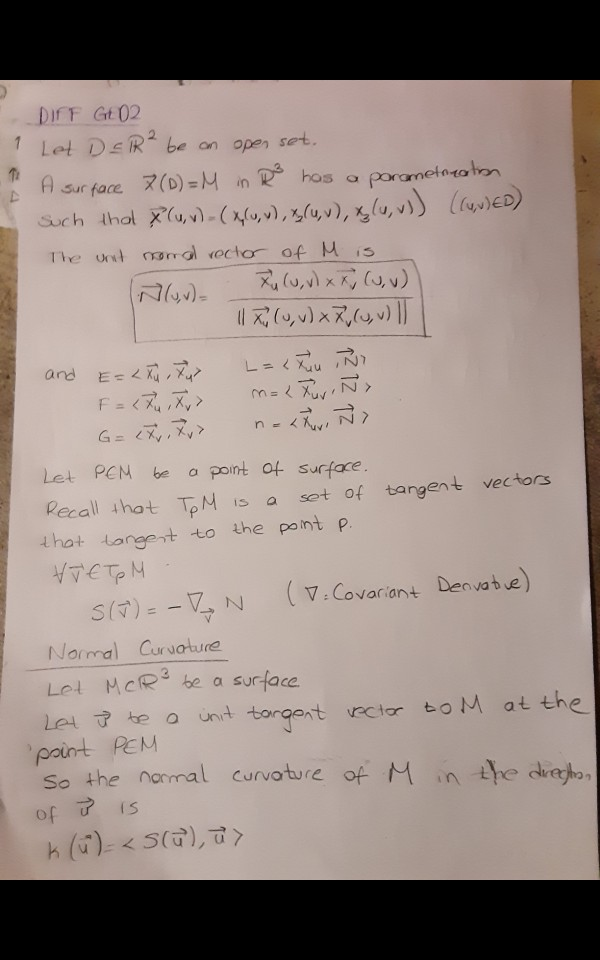 DIFF GEO2
1 Let D ⊆ ℝ² be an open set.
A surface x⃗(D) = M in ℝ³ has a parametrization
such that x⃗(u,v) = (x₁(u,v), x₂(u,v), x₃(u,v)) ((u,v)∈D)
The unit normal vector of M is
N⃗(u,v) = x⃗ᵤ(u,v) × x⃗ᵥ(u,v) / || x⃗ᵤ(u,v) × x⃗ᵥ(u,v) ||
and E = < x⃗ᵤ , x⃗ᵤ > L = < x⃗ᵤᵤ , N⃗ >
F = < x⃗ᵤ , x⃗ᵥ > m = < x⃗ᵤᵥ , N⃗ >
G = < x⃗ᵥ , x⃗ᵥ > n = < x⃗ᵤᵥ , N⃗ >
Let P∈M be a point of surface.
Recall that TₚM is a set of tangent vectors
that tangent to the point p.
∀v⃗ ∈ TₚM
S(v⃗) = -∇_v⃗ N (∇: Covariant Derivative)
Normal Curvature
Let M⊂ℝ³ be a surface
Let u⃗ be a unit tangent vector to M at the
point P∈M
So the normal curvature of M in the direction
of u⃗ is
k(u⃗) = < S(u⃗), u⃗ >